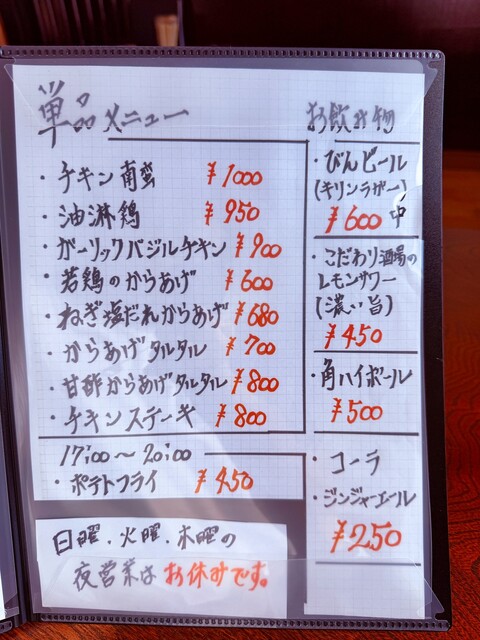 単品メニュー
・チキン南蛮 ¥1000
・油淋鶏 ¥950
・ガーリックバジルチキン ¥900
・若鶏のからあげ ¥600
・ねぎ塩だれからあげ ¥680
・からあげタルタル ¥700
・甘酢からあげタルタル ¥800
・チキンステーキ ¥800
17:00～20:00
・ポテトフライ ¥450
日曜、火曜、木曜の
夜営業はお休みです。
お飲み物
・びんビール
(キリンラガー)
¥600 中
・こだわり酒場の
レモンサワー
(濃い旨)
¥450
・角ハイボール
¥500
・コーラ
・ジンジャーエール
¥250